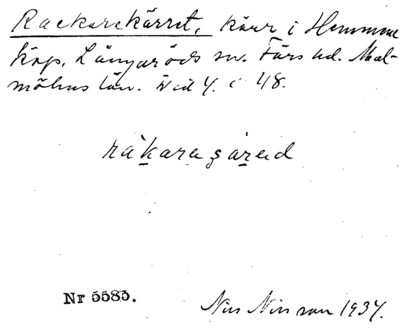 Rackarekärret, kärr i Hemmene
köp, Långaröds sn. Färs hd. Mal-
möhus län. Vid Y. i 48.
råkaraçäred
Nr 5585.
Nils Nilsson 1937.